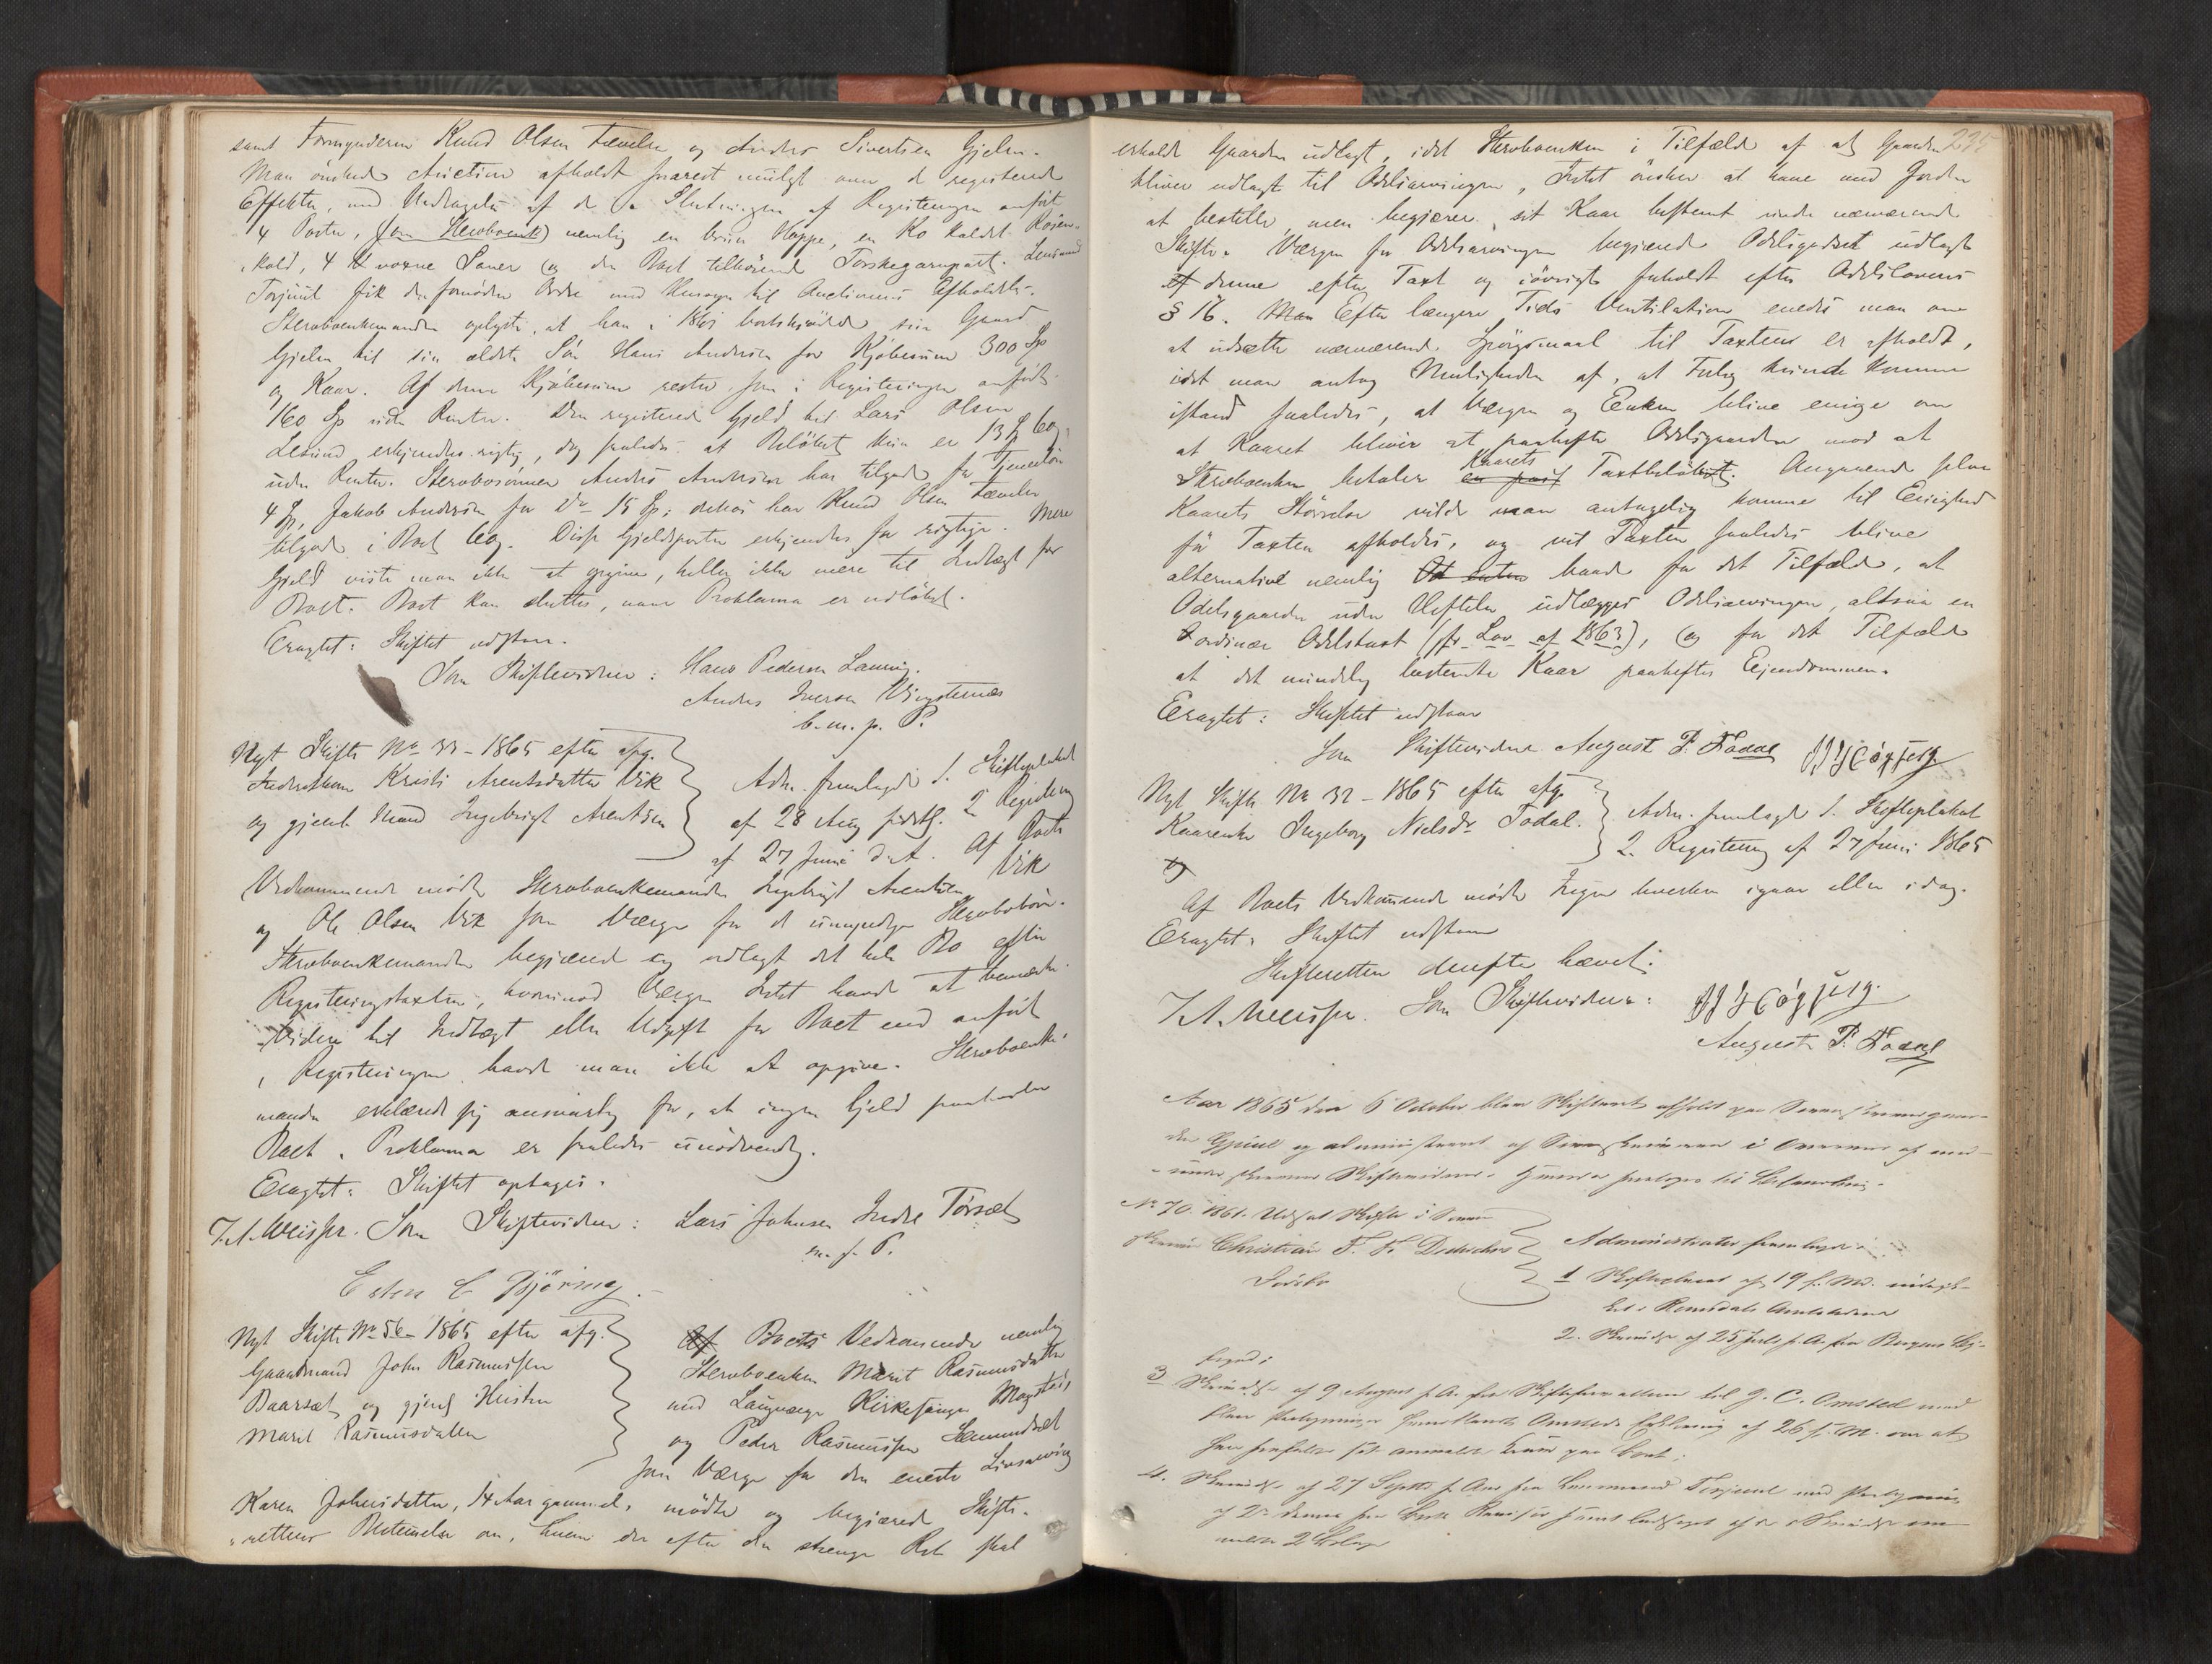 samt Formynderen Knud Olsen Tævelen og Anders Sivertsen Gjelen.
Man ønskede Auction afholdt snarest muligt over de registerede
Effekter, med Undtagelse af de i Slutningen af Registeringen anført
4 Poster, (som Sterboenke) nemlig en brun Hoppe, en Ko kaldet Rosen-
kold, 4 voxne Sauer og den Boet tilhørende Torskegarnpart. Lensmand
Torjuul fik den fornødne Ordre med Hensyn til Auctionens Afholdelse.
Sterboenkemanden oplyste, at han i 1861 bortskjødede sin Gaard
Gjelen til sin ældste Søn Hans Andersen for Kjøbesum 300 Sp
og Kaar. Af denne Kjøbesum rester, som i Registeringen anført
160 Sp uden Renter. Den registerede Gjeld til Lars Olsen
Lesund erkjendtes rigtig, dog saaledes at Beløbet kun er 13
uden Renter. Sterbosønnen Anders Andersen har tilgode for Tjenerløn
4 Sp, Jakob Andersen for Do 15 Sp; desuden har Knud Olsen Tævelen
tilgode i Boet. Disse Gjeldsposter erkjendtes for rigtige. Mere
Gjeld viste man ikke at opgive, heller ikke mere til Indtægt for
Boet. Boet kan sluttes, naar Proklama er udløbet.
Eragtet: Skiftet udstaar.
Som Skiftevidner: Hans Pedersen Lauvig.
Anders Iversen Vingsternes
b. m. p. P.
Nyt Skifte No 33 - 1865 efter afg.
Inderstkone Kristi Arentsdatter Vik
og gjenl. Mand Ingebrigt Arentsen
Adm. fremlagde 1. Skifteplakat
af 28 Aug sidstl. 2 Registering
af 27 Juni d. A. Af Boets
Vedkommende mødte Sterboenkemanden Ingebrigt Arentsen Vik
og Ole Olsen Vik som Værge for de umyndige Sterbobørn.
Sterboenkemanden begjærede sig udlagt det hele Bo efter
Registeringstaxten, hvorimod Værgen Intet havde at bemærke.
Videre til Indtægt eller Udgift for Boet end anført
i Registeringen havde man ikke at opgive. Sterboenke-
manden erklærede sig ansvarlig for, at ingen Gjeld paahviler
Boet. Proklama er saaledes unødvendig.
Eragtet: Skiftet optages.
J. A. Meisser. Som Skiftevidner: Lars Johnsen Indre Tørsæt
m. p. P.
Esten C Björing.
Nyt Skifte No 56 - 1865 efter afg.
Gaardmand John Rasmussen
Baarsæt og gjenl. Hustru
Marit Rasmusdatter
Af Boets Vedkommende nemlig
Sterboenken Marit Rasmusdatter
med Laugværge Kirkesanger Magstei,
og Peder Rasmussen Semundset
som Værge for den eneste Livsarving
Karen Johnsdatter, 14 Aar gammel, mødte og begjærede Skifte-
rettens Bestemmelse om, hvem der efter den strenge Ret skal
erholde Gaarden udlagt, idet Sterboenken i Tilfælde af at Gaarden
bliver udlagt til Odelsarvingen, Intet ønsker at have med Jorden
at bestille, men begjærer sit Kaar bestemt under nærværende
Skifte. Værgen for Odelsarvingen begjærede Odelsgodset udlagt
til denne efter Taxt og iøvrigt Forholdt efter Odelslovens
§ 16. Man Efter længere Tids Ventilation enedes man om
at udsætte nærværende Spørgsmaal til Taxten er afholdt,
idet man antog Muligheden af, at Forlig kunde komme
istand saaledes, at Værgen og Enken blive enige om
at Kaaret bliver at paahefte Odelsgaarden mod at
Sterboenken betaler en part Kaarets Taxtbeløbet. Angaaende selve
Kaarets Størrelse vilde man antagelig komme til Enighed
før Taxten afholdes, og vil Taxten saaledes blive
alternativ nemlig Od enten baade for det Tilfælde, at
Odelsgaarden uden Heftelse udlægges Odelsarvingen, altsaa en
ordinær Odelstaxt (jfr Lov af 1863), og for det Tilfælde
at det mindelig bestemte Kaar paaheftes Ejendommen.
Eragtet: Skiftet udstaar
Som Skiftevidner August P. Todal
Nyt Skifte No 32 - 1865 efter afg.
Kaarenke Ingeborg Nielsdr Todal.
Adm. fremlagde 1. Skifteplakat
2. Registering af 27 Juni 1865
Af Boets Vedkommende mødte Ingen hverken igaar eller idag.
Eragtet: Skiftet udstaar
Skifteretten derefter hævet.
J. A. Meisser. Som Skiftevidner:
August P. Todal
Aar 1865 den 6 October blev Skifteret afholdt paa Sorenskrivergaar-
den Gjuul og administreret af Sorenskriveren i Overvær af und-
erskrevne Skiftevidner. Hvorda foretoges til Behandling
No 70. 1861. Udsat Skifte i Soren
skriver Christian F. F. Dedechens
Dødsbo
Administrator fremlagde
1 Skifteplakat af 19 f. Md. indrykk-
et i Romsdals Amtstidende
2. Skrivelse af 25 Juli f. A. fra Bergens By-
foged;
3 Skrivelse af 9 August f. A. fra Skifteforvalteren til G. C. Omsted med
dens Paategning Omsteds Erklæring af 26 f. M. om at
han frafalder sit anmeldte Krav paa Boet;
4. Skrivelse af 27 Septbr f. A. fra Lensmand Torjuul med Paategning